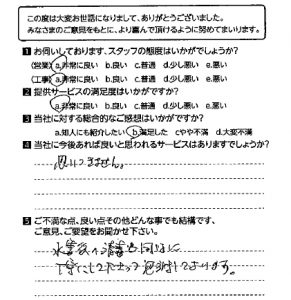 この度は大変お世話になりまして、ありがとうございました。
みなさまのご意見をもとに、より喜んで頂けるように努めてまいります。
1 お伺いしております、スタッフの態度はいかがでしょうか?
(営業) a.非常に良い b.良い c.普通 d.少し悪い e.悪い
(工事) a.非常に良い b.良い c.普通 d.少し悪い e.悪い
2 提供サービスの満足度はいかがですか?
a.非常に良い b.良い c.普通 d.少し悪い e.悪い
3 当社に対する総合的なご感想はいかがですか?
a.知人にも紹介したい b.満足した c.やや不満 d.大変不満
4 当社に今後あれば良いと思われるサービスはありますでしょうか?
思いつきません。
5 ご不満な点、良い点その他どんな事でも結構です、
ご意見、ご要望をお聞かせ下さい。
丁寧にして下さって感謝しております。